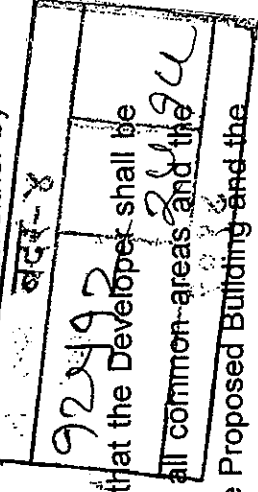 बदर-४
१२५१२
that the Developer shall be
all common areas and the
Proposed Building and the